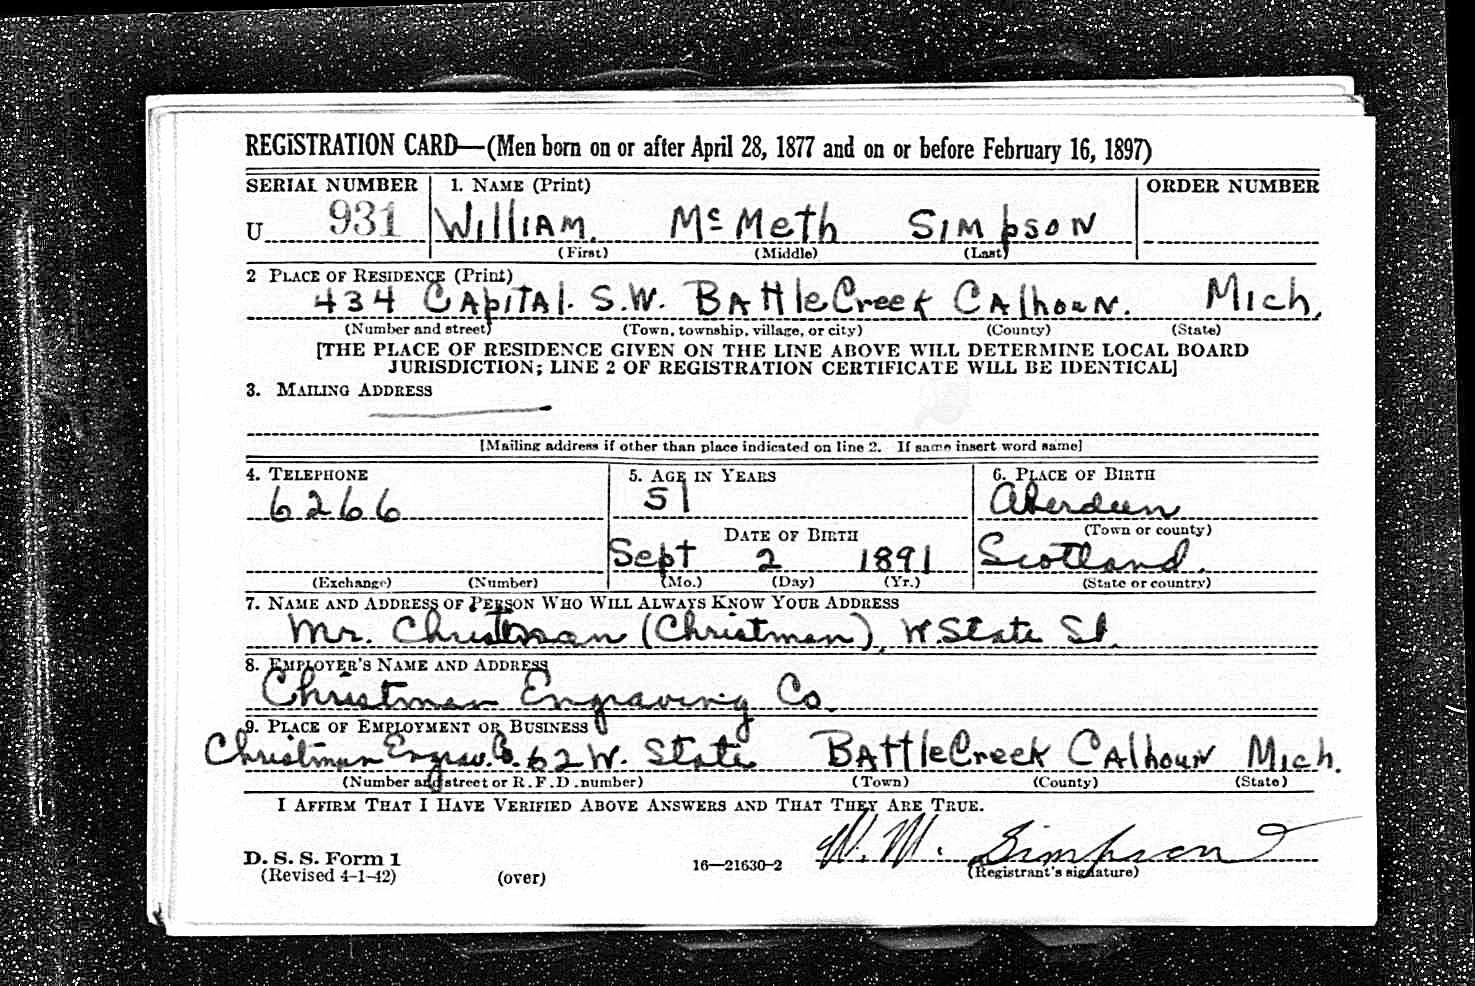 REGISTRATION CARD—(Men born on or after April 28, 1877 and on or before February 16, 1897)
SERIAL NUMBER 1. NAME (Print) ORDER NUMBER
U 931 William. McMeth Simpson
(First) (Middle) (Last)
2 PLACE OF RESIDENCE (Print)
434 Capital. S.W. Battle Creek Calhoun. Mich.
(Number and street) (Town, township, village, or city) (County) (State)
[THE PLACE OF RESIDENCE GIVEN ON THE LINE ABOVE WILL DETERMINE LOCAL BOARD
JURISDICTION; LINE 2 OF REGISTRATION CERTIFICATE WILL BE IDENTICAL]
3. MAILING ADDRESS
[Mailing address if other than place indicated on line 2. If same insert word same]
4. TELEPHONE 5. AGE IN YEARS 6. PLACE OF BIRTH
6266 51 Aberdeen
DATE OF BIRTH (Town or county)
Sept 2 1891 Scotland.
(Exchange) (Number) (Mo.) (Day) (Yr.) (State or country)
7. NAME AND ADDRESS OF PERSON WHO WILL ALWAYS KNOW YOUR ADDRESS
Mr. Christman (Christman), W. State St.
8. EMPLOYER'S NAME AND ADDRESS
Christman Engraving Co.
9. PLACE OF EMPLOYMENT OR BUSINESS
Christman Engrav. Co. 62 W. State Battle Creek Calhoun Mich.
(Number and street or R. F. D. number) (Town) (County) (State)
I AFFIRM THAT I HAVE VERIFIED ABOVE ANSWERS AND THAT THEY ARE TRUE.
W. M. Simpson
D. S. S. Form 1
(Revised 4-1-42) (over) 16—21630-2 (Registrant's signature)